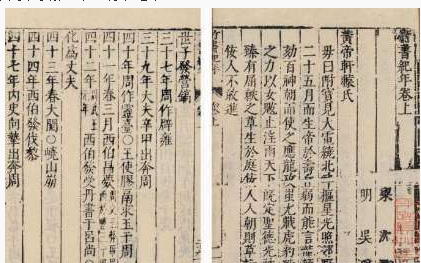 竹書紀年卷上
梁 沈
明 吳
黃帝軒轅氏
母曰附寶見大電繞北斗樞星光照郊野
二十五月而生帝於壽丘弱而能言龍
劾百神朝而使之應龍攻蚩尤戰虎豹
之力以女魃止淫雨天下既定聖德光
臻有屈軼之草生於庭佞人入朝則草
佞人不敢進
世子發營鎬
三十七年周作辟雍
三十九年大夫辛甲出奔周
四十年周作靈臺○王使膠鬲求玉于周
四十一年春三月西伯昌薨
四十二年西伯發受丹書于呂尚○
化為丈夫
四十三年春大閱○嶢山崩
四十四年西伯發伐黎
四十七年內史向摯出奔周